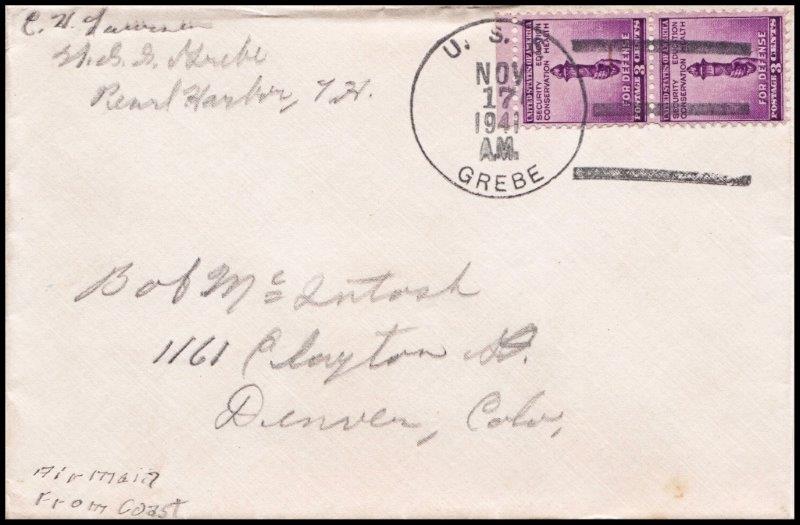 C. H.
U.S.S. Grebe
Pearl Harbor, T.H.
U. S. S.
NOV
17
1941
A.M.
GREBE
UNITED STATES OF AMERICA
SECURITY EDUCATION
CONSERVATION HEALTH
FOR DEFENSE
POSTAGE 3 CENTS
UNITED STATES OF AMERICA
SECURITY EDUCATION
CONSERVATION HEALTH
FOR DEFENSE
POSTAGE 3 CENTS
Bob McIntosh
1161 Clayton St.
Denver, Colo,
Air Mail
From Coast